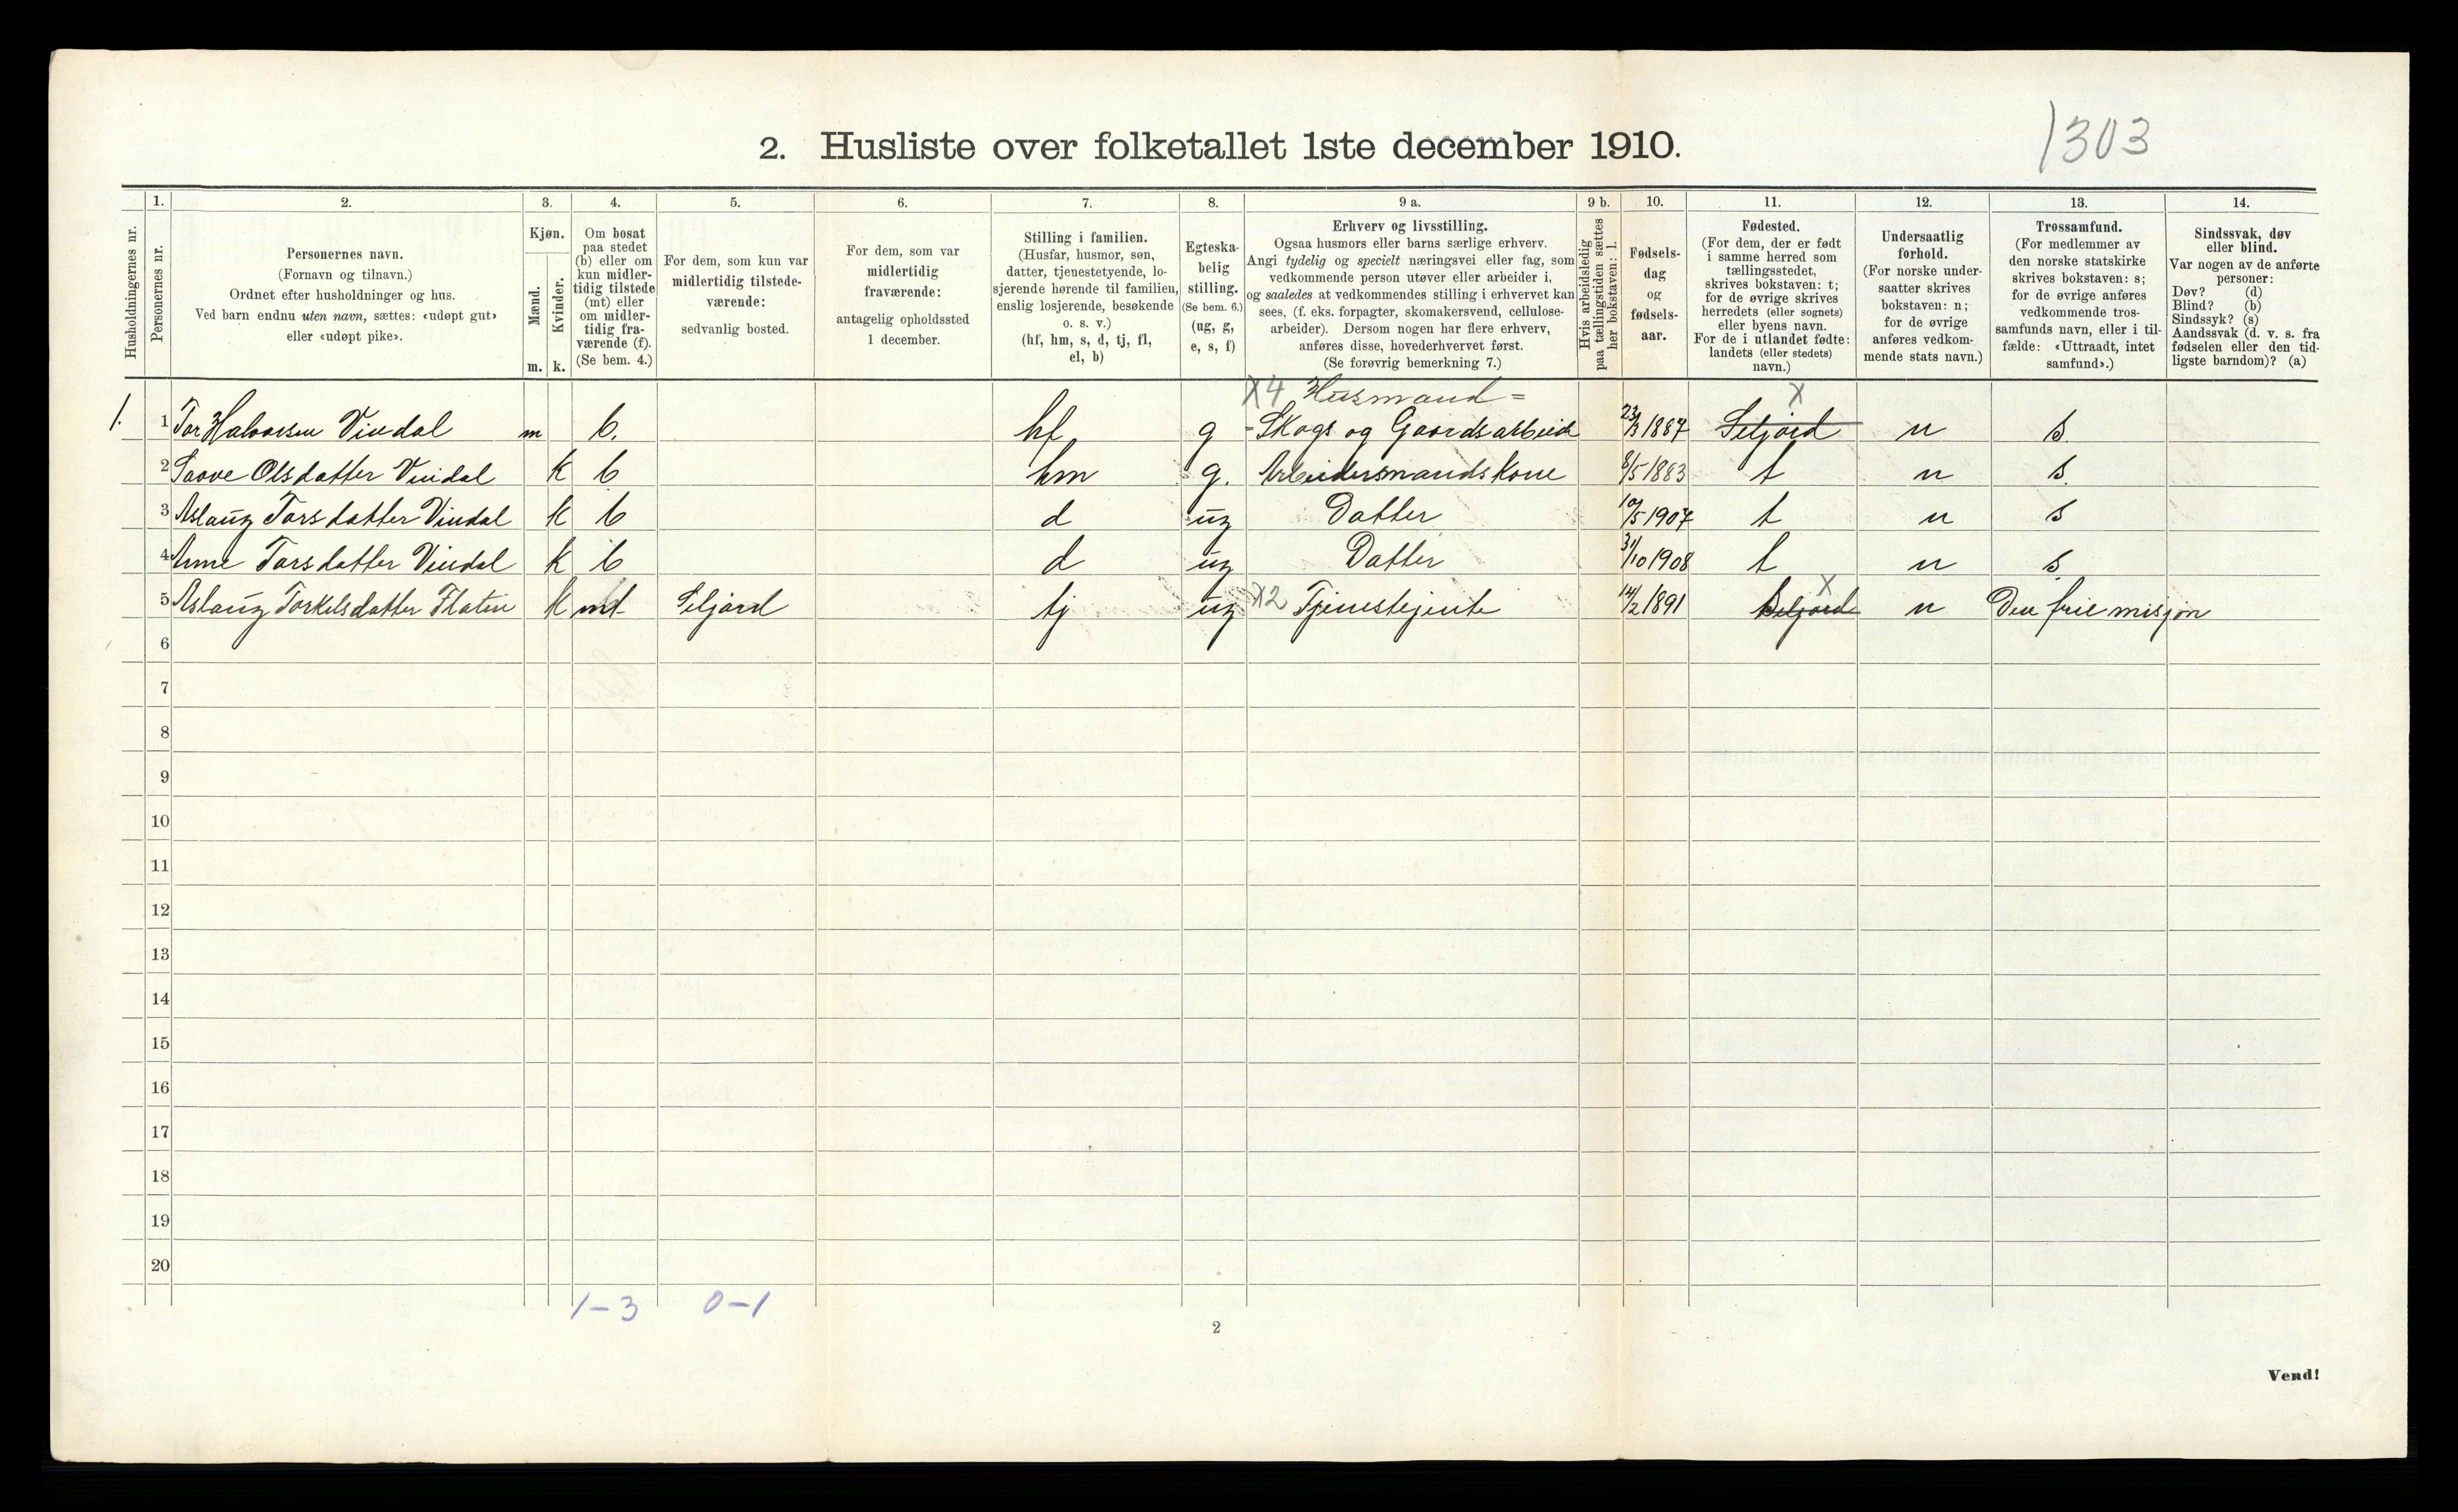 1303
2. Husliste over folketallet 1ste december 1910.
Husholdningernes nr.
1.
Personernes nr.
2.
Personernes navn.
(Fornavn og tilnavn.)
Ordnet efter husholdninger og hus.
Ved barn endnu uten navn, sættes: «udøpt gut»
eller «udøpt pike».
3.
Kjøn.
Mænd.
Kvinder.
m. k.
4.
Om bosat
paa stedet
(b) eller om
kun midler-
tidig tilstede
(mt) eller
om midler-
tidig fra-
værende (f).
(Se bem. 4.)
5.
For dem, som kun var
midlertidig tilstede-
værende:
sedvanlig bosted.
6.
For dem, som var
midlertidig
fraværende:
antagelig opholdssted
1 december.
7.
Stilling i familien.
(Husfar, husmor, søn,
datter, tjenestetyende, lo-
sjerende hørende til familien,
enslig losjerende, besøkende
o. s. v.)
(hf, hm, s, d, tj, fl,
el, b)
8.
Egteska-
belig
stilling.
(Se bem. 6.)
(ug, g,
e, s, f)
9 a.
Erhverv og livsstilling.
Ogsaa husmors eller barns særlige erhverv.
Angi tydelig og specielt næringsvei eller fag, som
vedkommende person utøver eller arbeider i,
og saaledes at vedkommendes stilling i erhvervet kan
sees, (f. eks. forpagter, skomakersvend, cellulose-
arbeider). Dersom nogen har flere erhverv,
anføres disse, hovederhvervet først.
(Se forøvrig bemerkning 7.)
9 b.
Hvis arbeidsledig
paa tællingstiden sættes
her bokstaven: l.
10.
Fødsels-
dag
og
fødsels-
aar.
11.
Fødested.
(For dem, der er født
i samme herred som
tællingsstedet,
skrives bokstaven: t;
for de øvrige skrives
herredets (eller sognets)
eller byens navn.
For de i utlandet fødte:
landets (eller stedets)
navn.)
12.
Undersaatlig
forhold.
(For norske under-
saatter skrives
bokstaven: n;
for de øvrige
anføres vedkom-
mende stats navn.)
13.
Trossamfund.
(For medlemmer av
den norske statskirke
skrives bokstaven: s;
for de øvrige anføres
vedkommende tros-
samfunds navn, eller i til-
fælde: «Uttraadt, intet
samfund».)
14.
Sindssvak, døv
eller blind.
Var nogen av de anførte
personer:
Døv? (d)
Blind? (b)
Sindssyk? (s)
Aandssvak (d. v. s. fra
fødselen eller den tid-
ligste barndom)? (a)
X4 Husmand = X
1. 1 Tor Halvorsen Vindal m b. hf g - Skogs og Gaardsarbeide 23/3 1887 Seljord n s
2 Saave Olsdatter Vindal k b hm g. Arbeidersmandskone 8/5 1883 t n s.
3 Aslaug Torsdatter Vindal k b d ug Datter 10/5 1907 t n s
4 Anne Torsdatter Vindal k b d ug Datter 31/10 1908 t n s
5 Aslaug Torkelsdatter Flaten k mt Seljord tj ug X2 Tjenestejente 14/2 1891 Seljord X n Den frie misjon
6
7
8
9
10
11
12
13
14
15
16
17
18
19
20
1-3 0-1
2
Vend!